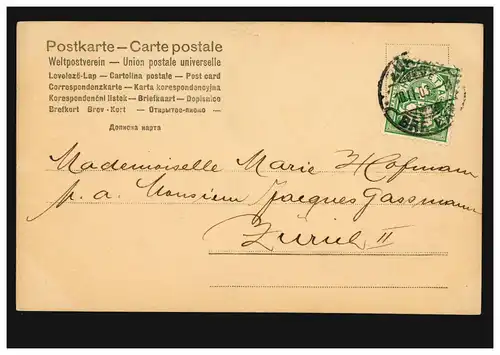 Postkarte — Carte postale
Weltpostverein — Union postale universelle
Levelező-Lap — Cartolina postale — Post card
Correspondenzkarte — Karta korespondencyjna
Korespondenční lístek — Briefkaart — Dopisnica
Brefkort Brev-Kort — Открытое письмо —
Дописна карта
Mademoiselle Marie Hofmann
p. a. Monsieur Jacques Gassmann
Zürich II